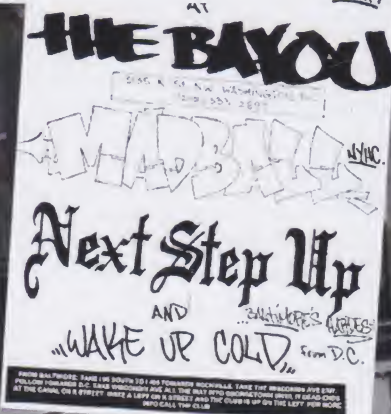 AT
THE BAYOU
WASHINGTON D.C.
MADBALL
NYHC.
Next Step Up
BALTIMORE'S
AND
"WAKE UP COLD" from D.C.
FROM BALTIMORE: TAKE I 95 SOUTH TO I 495 TOWARDS ROCKVILLE. TAKE THE WISCONSIN AVE EXIT.
FOLLOW TOWARDS D.C. TAKE WISCONSIN AVE ALL THE WAY INTO GEORGETOWN UNTIL IT DEAD ENDS
AT THE CANAL OR K STREET. MAKE A LEFT ON K STREET AND THE CLUB IS UP ON THE LEFT. FOR MORE
INFO CALL THE CLUB